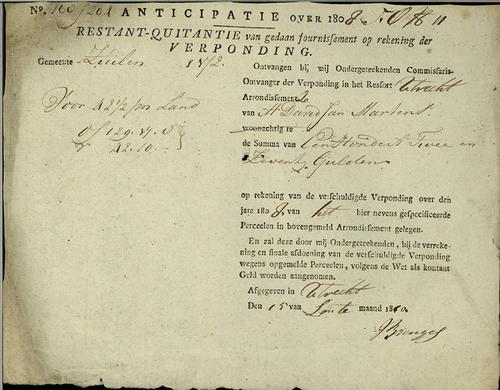 No. 160/201 ANTICIPATIE OVER 1808
RESTANT-QUITANTIE van gedaan fournissement op rekening der
VERPONDING.
Gemeente Zuilen 172.
Ontvangen bij mij Ondergeteekenden Commissaris-
Ontvanger der Verponding in het Ressort Utrecht
Arrondissement 2
van H David Jan Martens
woonachtig te
de Somma van Een Hondert Twee en
Zeventig Gulden
Voor 42 1/2 m Land
f 129.17.8
42.10.-
op rekening van de verschuldigde Verponding over den
jare 1808. van het hier nevens gespecificeerde
Perceelen in bovengemeld Arrondissement gelegen.
En zal deze door mij Ondergeteekenden, bij de verreke-
ning en finale afdoening van de verschuldigde Verponding
wegens opgemelde Perceelen, volgens de Wet als kontant
Geld worden aangenomen.
Afgegeven in Utrecht
Den 15 van Lente maand 1810.